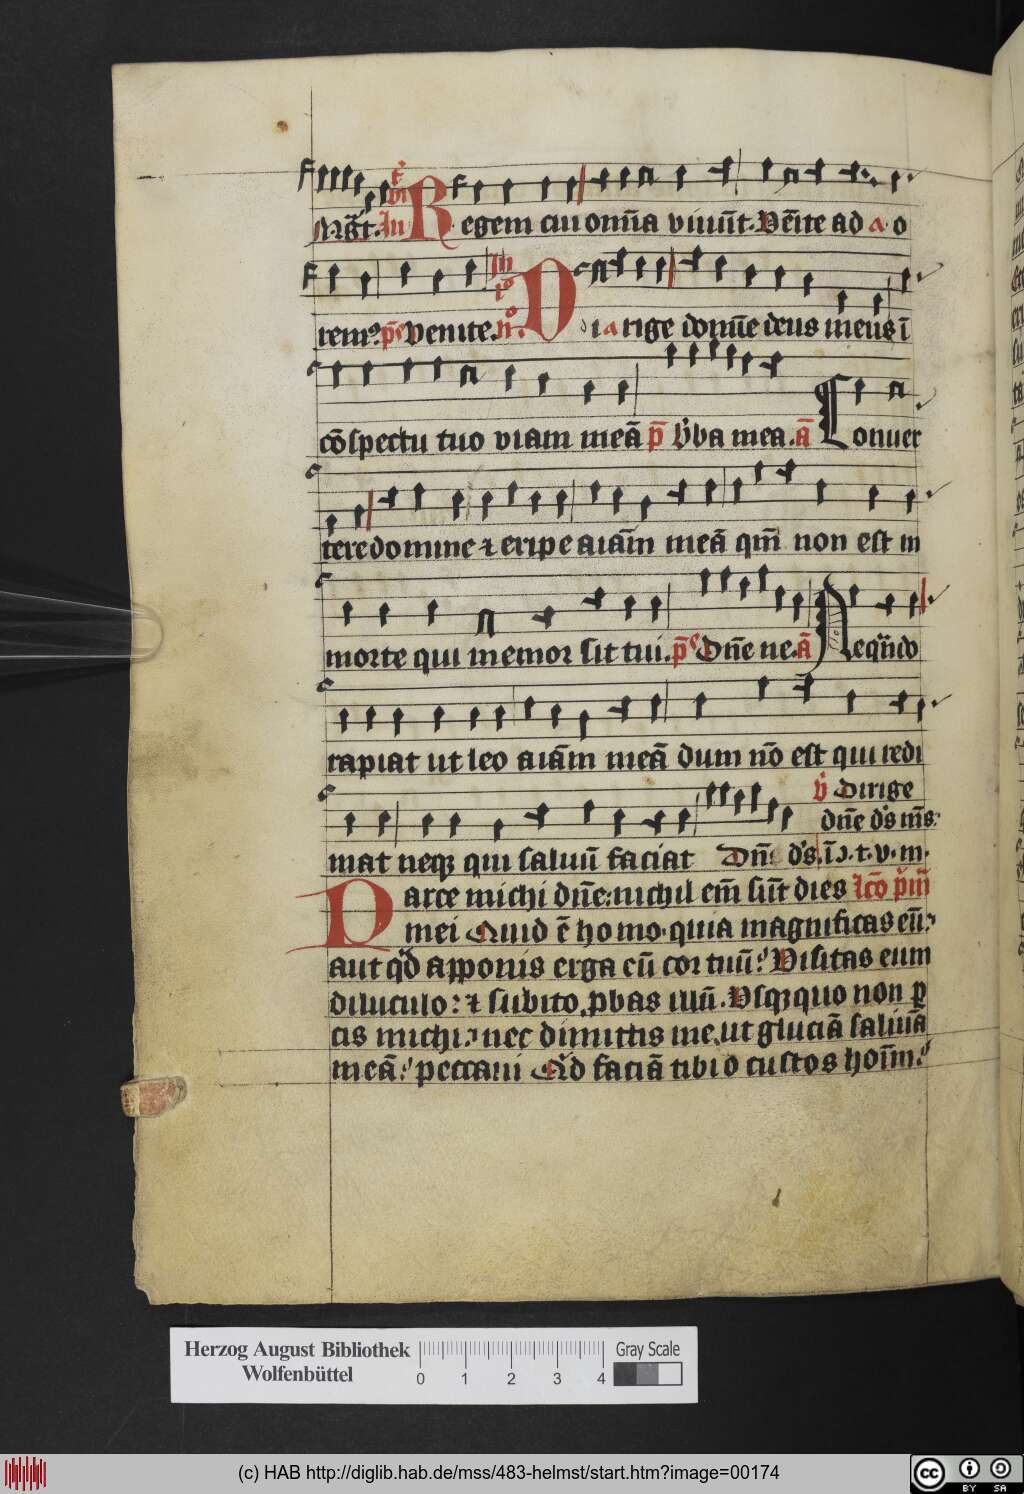 Mag̅t. In vi t̾
Regem cui om̅ia viuu̅t. Ve̅ite ad a o
rem9 p̅s Venite. In p̊ n̊.
Di a rige domi̅e deus meus i̅
co̅spectu tuo viam mea̅ p̅s v̾ba mea. a̅ Conuer
tere domine ⁊ eripe a̅i̅am mea̅ qm̅ non est in
morte qui memor sit tui. p̅s d̅n̅e ne. a̅ Neq̅n̅do
rapiat ut leo a̅i̅am mea̅ dum no̅ est qui redi
mat neqꝫ qui saluu̅ faciat
v̾ Dirige
dn̅e d̅s m̅s
Dn̅ d̅s. i̅ ↄ. t. v. m.
Parce michi dn̅e: nichil em̅ su̅t dies l̅co̅ p̾m̅
mei Quid e̅ homo. quia magnificas eu̅?
aut qͥd apponis erga eu̅ cor tuu̅? Visitas eum
diluculo: ⁊ subito p̱bas illu̅. Vsqꝫ quo non ꝑ
cis michi: nec dimittis me, ut glucia̅ saliua̅
mea̅? peccaui Qͥd facia̅ tibi o custos hoi̅m?
Herzog August Bibliothek
Wolfenbüttel
0 1 2 3 4
Gray Scale
(c) HAB http://diglib.hab.de/mss/483-helmst/start.htm?image=00174
cc BY SA